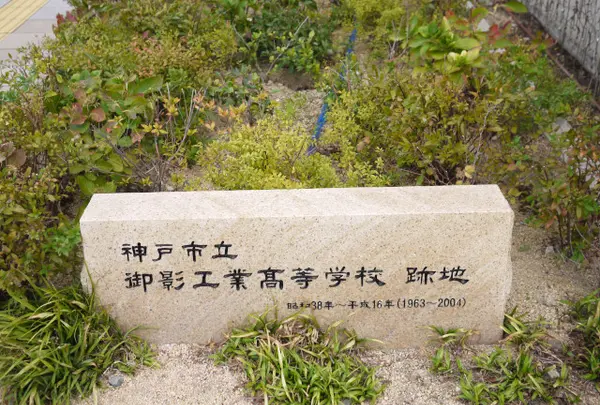 神戸市立
御影工業高等学校 跡地
昭和38年～平成16年(1963～2004)